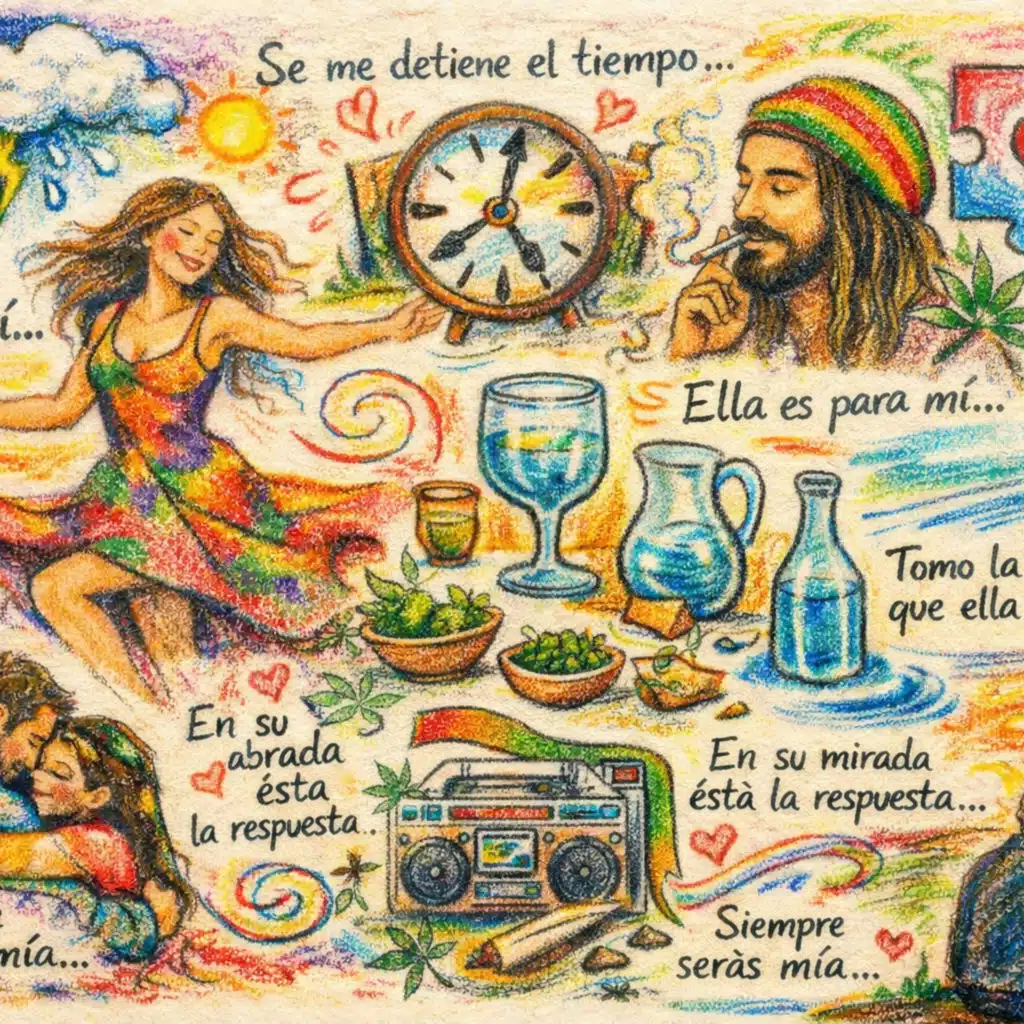 Se me detiene el tiempo...
í...
Ella es para mí...
Tomo la
que ella
En su
abrada
ésta
la respuesta..
En su mirada
éstà la respuesta...
mía...
Siempre
seràs mía...